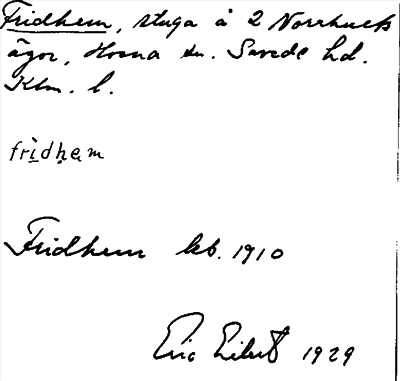 Fridhem, stuga å 2 Norrhults
ägor, Hovna sn. Sevede hd.
Klm. l.
frìdḥem
Fridhem kb. 1910
Eric Eilert 1929